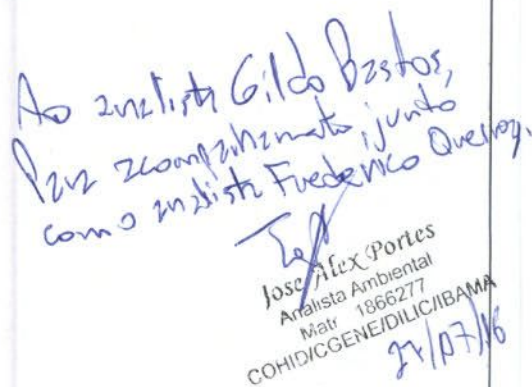 Ao analista Gildo Bastos,
Para acompanhamento, junto
com o analista Frederico Queiroz.
Jose Alex Portes
Analista Ambiental
Matr 1866277
COHID/CGENE/DILIC/IBAMA
/07/16